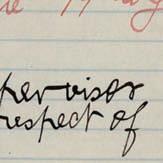 pervisor
respect of